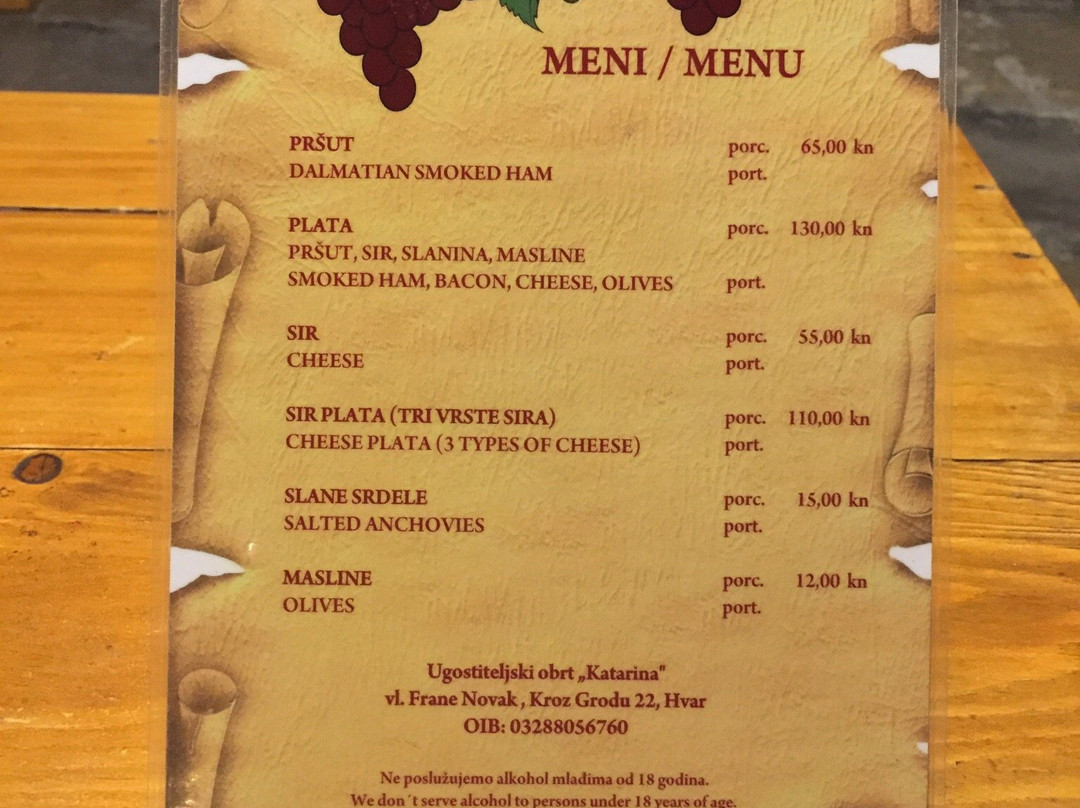 MENI / MENU
PRŠUT porc. 65,00 kn
DALMATIAN SMOKED HAM port.
PLATA porc. 130,00 kn
PRŠUT, SIR, SLANINA, MASLINE
SMOKED HAM, BACON, CHEESE, OLIVES port.
SIR porc. 55,00 kn
CHEESE port.
SIR PLATA (TRI VRSTE SIRA) porc. 110,00 kn
CHEESE PLATA (3 TYPES OF CHEESE) port.
SLANE SRDELE porc. 15,00 kn
SALTED ANCHOVIES port.
MASLINE porc. 12,00 kn
OLIVES port.
Ugostiteljski obrt „Katarina"
vl. Frane Novak , Kroz Grodu 22, Hvar
OIB: 03288056760
Ne poslužujemo alkohol mlađima od 18 godina.
We don´t serve alcohol to persons under 18 years of age.